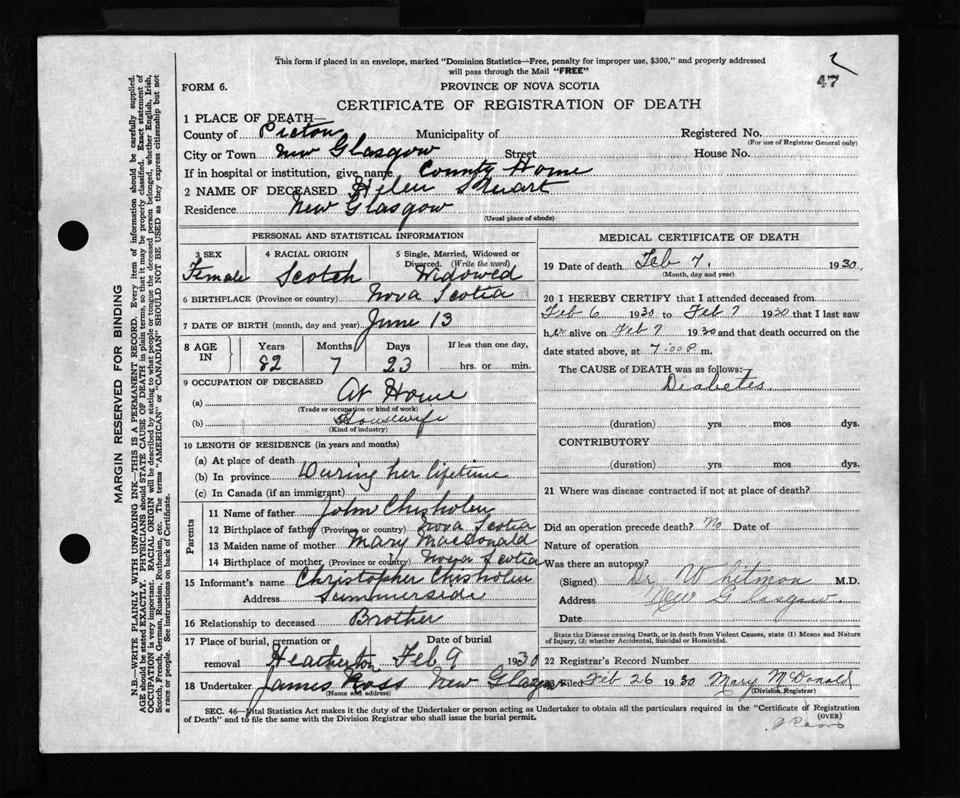 This form if placed in an envelope, marked "Dominion Statistics—Free, penalty for improper use, $300," and properly addressed
will pass through the Mail "FREE"
47
FORM 6. PROVINCE OF NOVA SCOTIA
CERTIFICATE OF REGISTRATION OF DEATH
1 PLACE OF DEATH—
County of Pictou Municipality of Registered No.
(For use of Registrar General only)
City or Town New Glasgow Street House No.
If in hospital or institution, give name County Home
2 NAME OF DECEASED Helen Stewart
Residence New Glasgow
(Usual place of abode)
PERSONAL AND STATISTICAL INFORMATION
3 SEX 4 RACIAL ORIGIN 5 Single, Married, Widowed or Divorced. (Write the word)
Female Scotch Widowed
6 BIRTHPLACE (Province or country) Nova Scotia
7 DATE OF BIRTH (month, day and year) June 13
8 AGE IN Years Months Days If less than one day,
82 7 23 hrs. or min.
9 OCCUPATION OF DECEASED
(a) At Home
(Trade or occupation or kind of work)
(b) Housewife
(Kind of industry)
10 LENGTH OF RESIDENCE (in years and months)
(a) At place of death
(b) In province During her lifetime
(c) In Canada (if an immigrant)
Parents
11 Name of father John Chisholm
12 Birthplace of father (Province or country) Nova Scotia
13 Maiden name of mother Mary MacDonald
14 Birthplace of mother (Province or country) Nova Scotia
15 Informant's name Christopher Chisholm
Address Summerside
16 Relationship to deceased Brother
17 Place of burial, cremation or removal Date of burial
Heatherton Feb 9 1930
18 Undertaker James Ross New Glasgow
(Name and address)
MEDICAL CERTIFICATE OF DEATH
19 Date of death Feb 7. 1930
(Month, day and year)
20 I HEREBY CERTIFY that I attended deceased from
Feb 6 1930 to Feb 7 1930 that I last saw
her alive on Feb 7 1930 and that death occurred on the
date stated above, at 7:00 P.m.
The CAUSE of DEATH was as follows:
Diabetes
(duration) yrs mos dys.
CONTRIBUTORY
(duration) yrs mos dys.
21 Where was disease contracted if not at place of death?
Did an operation precede death? No Date of
Nature of operation
Was there an autopsy?
(Signed) Dr Whitman M.D.
Address New Glasgow
Date
State the Disease causing Death, or in death from Violent Causes, state (1) Means and Nature
of Injury, (2) whether Accidental, Suicidal or Homicidal.
22 Registrar's Record Number
Filed Feb 26 1930 Mary McDonald
(Division Registrar)
SEC. 46—Vital Statistics Act makes it the duty of the Undertaker or person acting as Undertaker to obtain all the particulars required in the "Certificate of Registration
of Death" and to file the same with the Division Registrar who shall issue the burial permit.
(OVER)
MARGIN RESERVED FOR BINDING
N.B.—WRITE PLAINLY WITH UNFADING INK—THIS IS A PERMANENT RECORD. Every item of information should be carefully supplied.
AGE should be stated EXACTLY. PHYSICIANS should STATE CAUSE OF DEATH in plain terms, so that it may be properly classified. Exact statement of
OCCUPATION is very important. RACIAL ORIGIN will be described by stating to what people or tongue the deceased person belonged, whether English, Irish,
Scotch, French, German, Russian, Ruthenian, etc. The terms "AMERICAN" or "CANADIAN" SHOULD NOT BE USED as they express citizenship but not
a race or people. See instructions on back of Certificate.